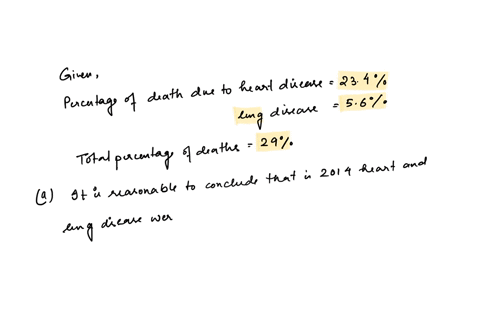 Given,
Percentage of death due to heart disease = 23.4%
lung disease = 5.6%
Total percentage of deaths = 29%
(a) It is reasonable to conclude that is 2014 heart and
lung disease wer